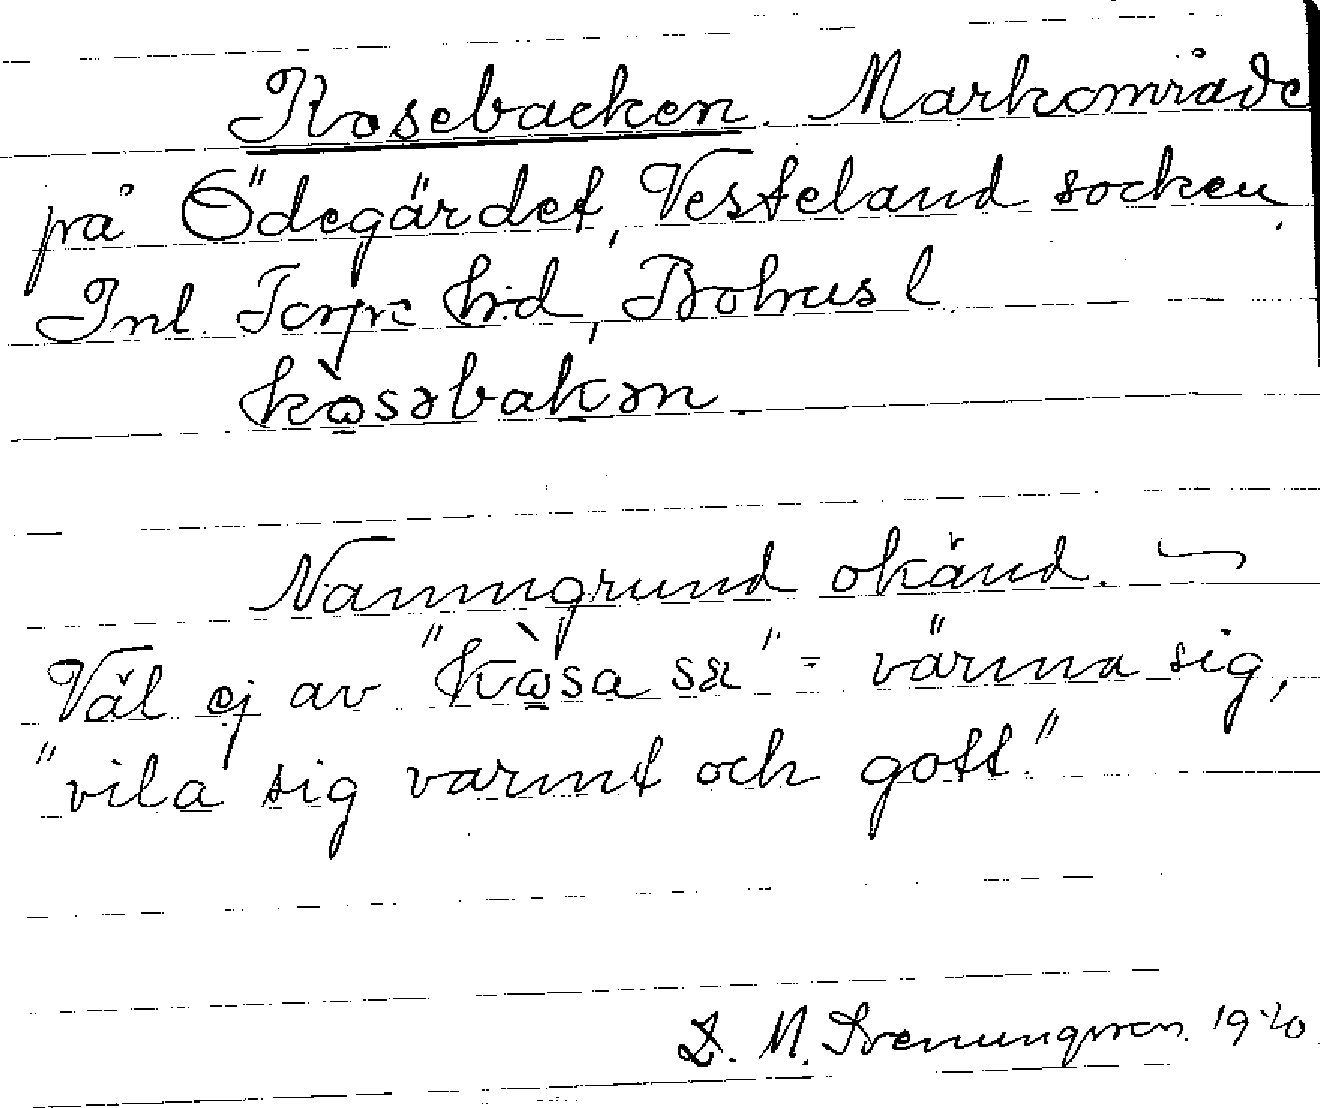 Kosebacken. Markområde
på Ödegärdet, Vesteland socken,
Inl. Torpe hrd, Bohusl.
kòsəbakən
Namngrund okänd. —
Väl ej av "kòsa sæ" = värma sig,
"vila sig varmt och gott"
D. M. Svenungsson. 1920